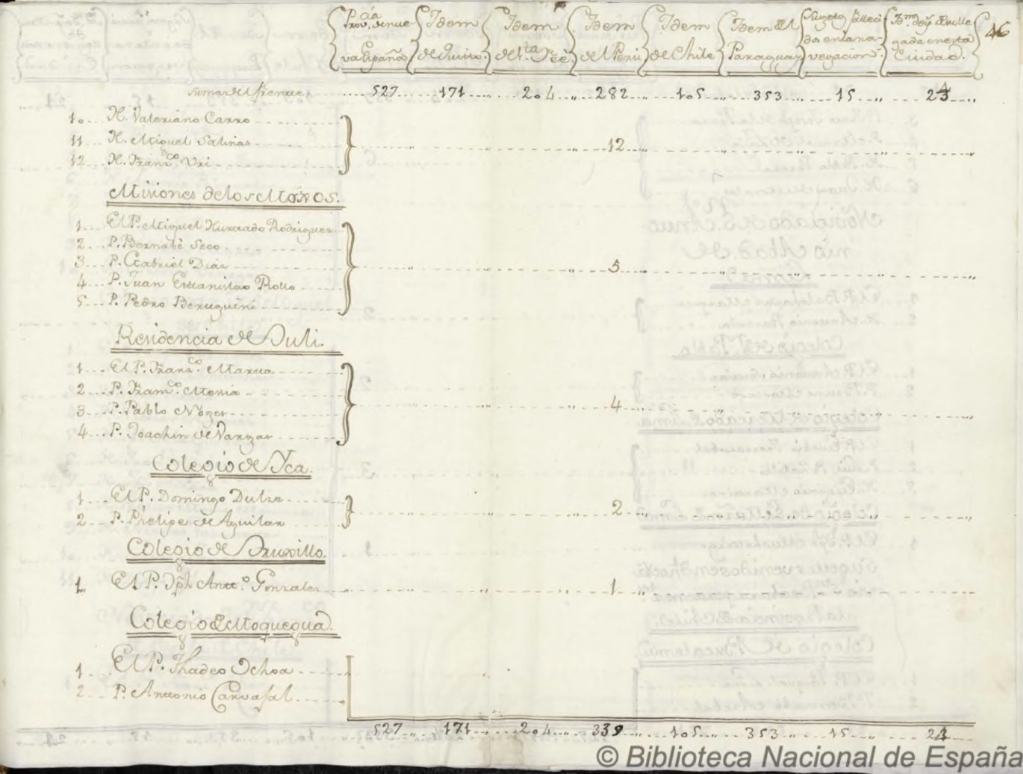 Prov.ª de nue
va España
Idem
de Quito
Idem
de S.ta Fee
Idem
del Perú
Idem
de Chile
Idem del
Paraguay
Sugetos falleci
dos en la na
vegacion
Ciudad
46
Suma del frente 527 171 204 282 105 353 15 24
10 H. Valeriano Carro
11 H. Miguel Salinas 12
12 H. Fran.co Uri
Misiones de los Moxos.
1 El P. Miguel Hurtado Rodriguez
2 P. Bernabé Seco
3 P. Gabriel Diaz 5
4 P. Juan Estanislao Rollo
5 P. Pedro Berugueni
Residencia de Juli.
1 El P. Fran.co
2 P. Fran.co
3 P. Pablo 4
4 P. Joachin de Vargas
Colegio de Yca.
1 El P. Domingo Dulze
2 P. Phelipe de Aguilar 2
Colegio de Truxillo.
1 El P. Jph Antt.o Gonzales 1
Colegio de Moquegua
1 El P. Thadeo Ochoa
2 P. Anttonio Carvajal
527 171 204 339 105 353 15 24
© Biblioteca Nacional de España